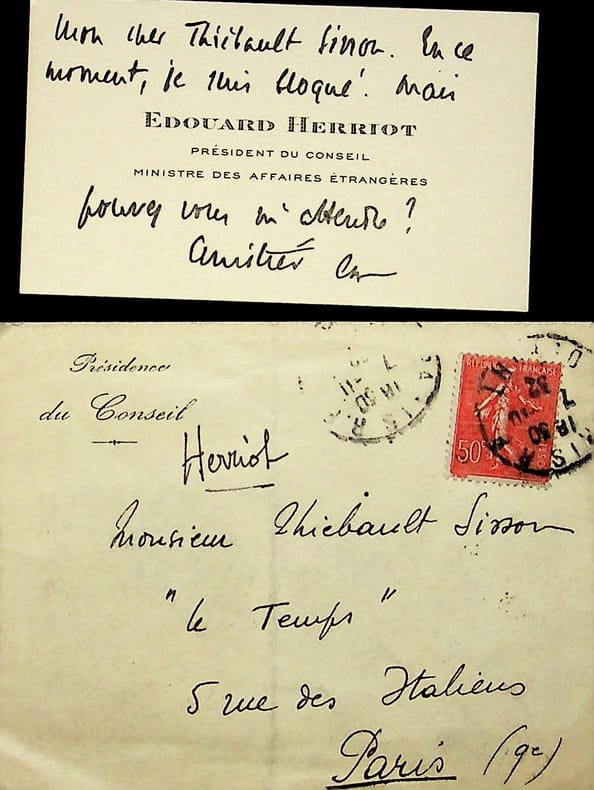 Mon cher Thiébault Sisson. En ce
moment, je suis bloqué. Mais
EDOUARD HERRIOT
PRÉSIDENT DU CONSEIL
MINISTRE DES AFFAIRES ÉTRANGÈRES
pouvez vous m'attendre?
Amitiés
Présidence
du Conseil
REPUBLIQUE FRANÇAISE
50
PARIS
18 30
7
32
Herriot
Monsieur Thiébault Sisson
"le Temps"
5 rue des Italiens
Paris (9e)